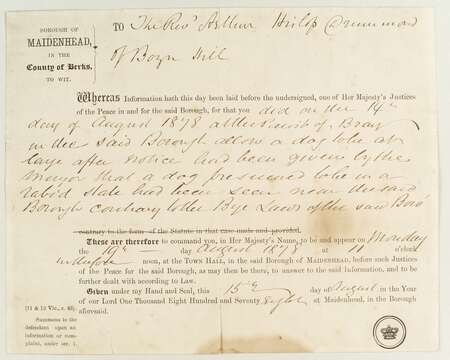 BOROUGH OF
MAIDENHEAD,
IN THE
County of Berks,
TO WIT.
TO The Revd Arthur Hislop Drummond
of Boyn Hill
Whereas Information hath this day been laid before the undersigned, one of Her Majesty's Justices
of the Peace in and for the said Borough, for that you did on the 14th
day of August 1878 at the Parish of Bray
in the said Borough allow a dog to be at
large after notice had been given by the
Mayor that a dog presumed to be in a
rabid state had been seen near the said
Borough contrary to the Bye Laws of the said Boro'
contrary to the form of the Statute in that case made and provided.
These are therefore to command you, in Her Majesty's Name, to be and appear on Monday
the 19th day August 1878 at 11
in the fore noon, at the TOWN HALL, in the said Borough of MAIDENHEAD, before such Justices
of the Peace for the said Borough, as may then be there, to answer to the said Information, and to be
further dealt with according to Law.
Given under my Hand and Seal, this 15th day of August in the Year
of our Lord One Thousand Eight Hundred and Seventy Eight at Maidenhead, in the Borough
aforesaid.
[11 & 12 Vic., c. 43].
Summons to the
defendant upon an
information or com-
plaint, under sec. 1.